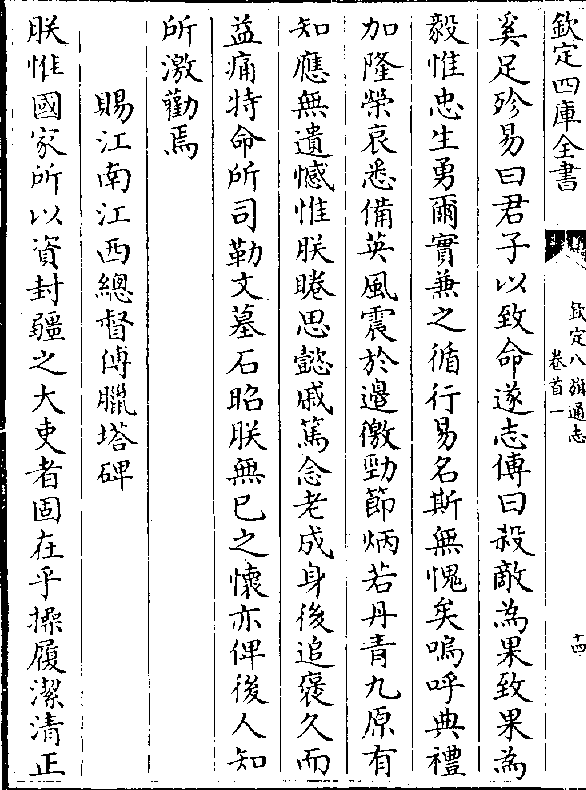 欽定四庫全書
欽定八旗通志
卷首一
十四
奚足殄易曰君子以致命遂志傳曰殺敵為果致果為
毅惟忠生勇爾實兼之循行易名斯無愧矣嗚呼典禮
加隆榮哀悉備英風震於邊徼勁節炳若丹青九原有
知應無遺憾惟朕睠思懿戚篤念老成身後追褒久而
益痛特命所司勒文墓石昭朕無已之懷亦俾後人知
所激勸焉
賜江南江西總督傅臘塔碑
朕惟國家所以資封疆之大吏者固在乎操履潔清正